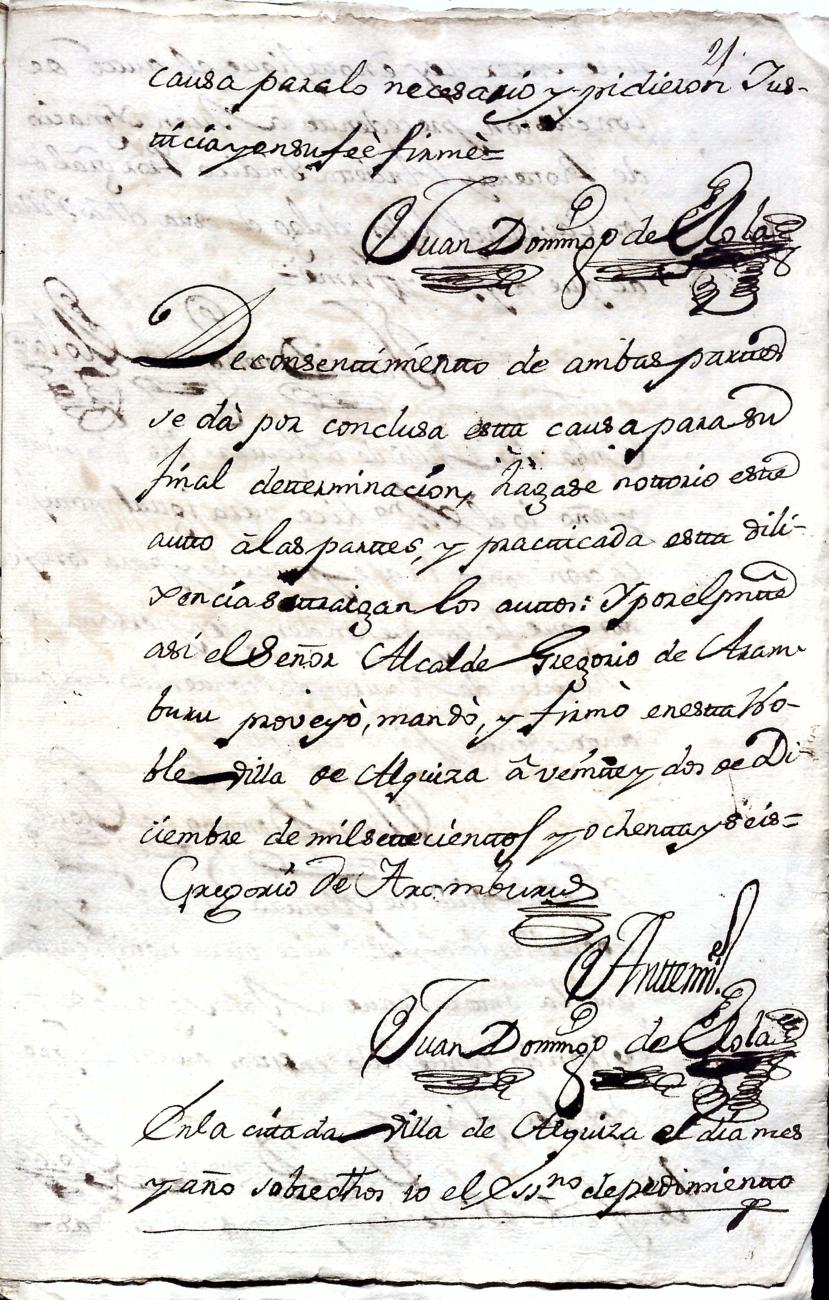 21.
causa para lo necesario y pidieron Jus-
tticia y en su feè firmè=
Juan Domingo de Elola
De consentimientto de ambas parttes
se dà por conclusa estta causa para su
final detterminacion, hàgase nottorio este
autto à las parttes, y practticada estta dili-
xencia se ttraigan los auttos: Y por el pnttè
asi el Señor Alcalde Gregorio de Aram-
buru proveyò, mandò, y firmò en estta No-
ble Villa de Alquiza à veintte y dos de Di-
ciembre de mil settecienttos y ochentta y seis=
Gregorio de Aramburu
Antte mi
Juan Domingo de Elola
En la cittada Villa de Alquiza el dia mes
y año sobredhos io el Essno de pedimientto